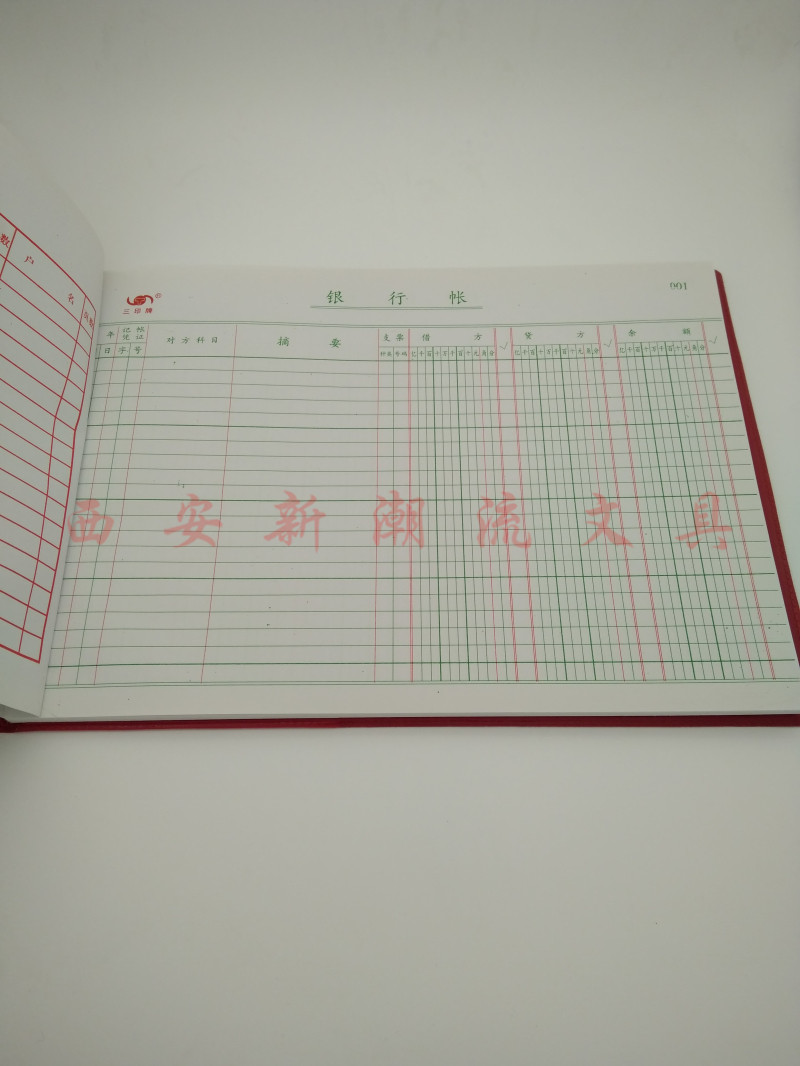 数 户 名
三印牌 ®
银行帐
001
年 记帐凭证 对方科目 摘要 支票 借方 √ 贷方 √ 余额 √
日 字 号 种类 号码 亿千百十万千百十元角分 亿千百十万千百十元角分 亿千百十万千百十元角分
西安新潮流文具